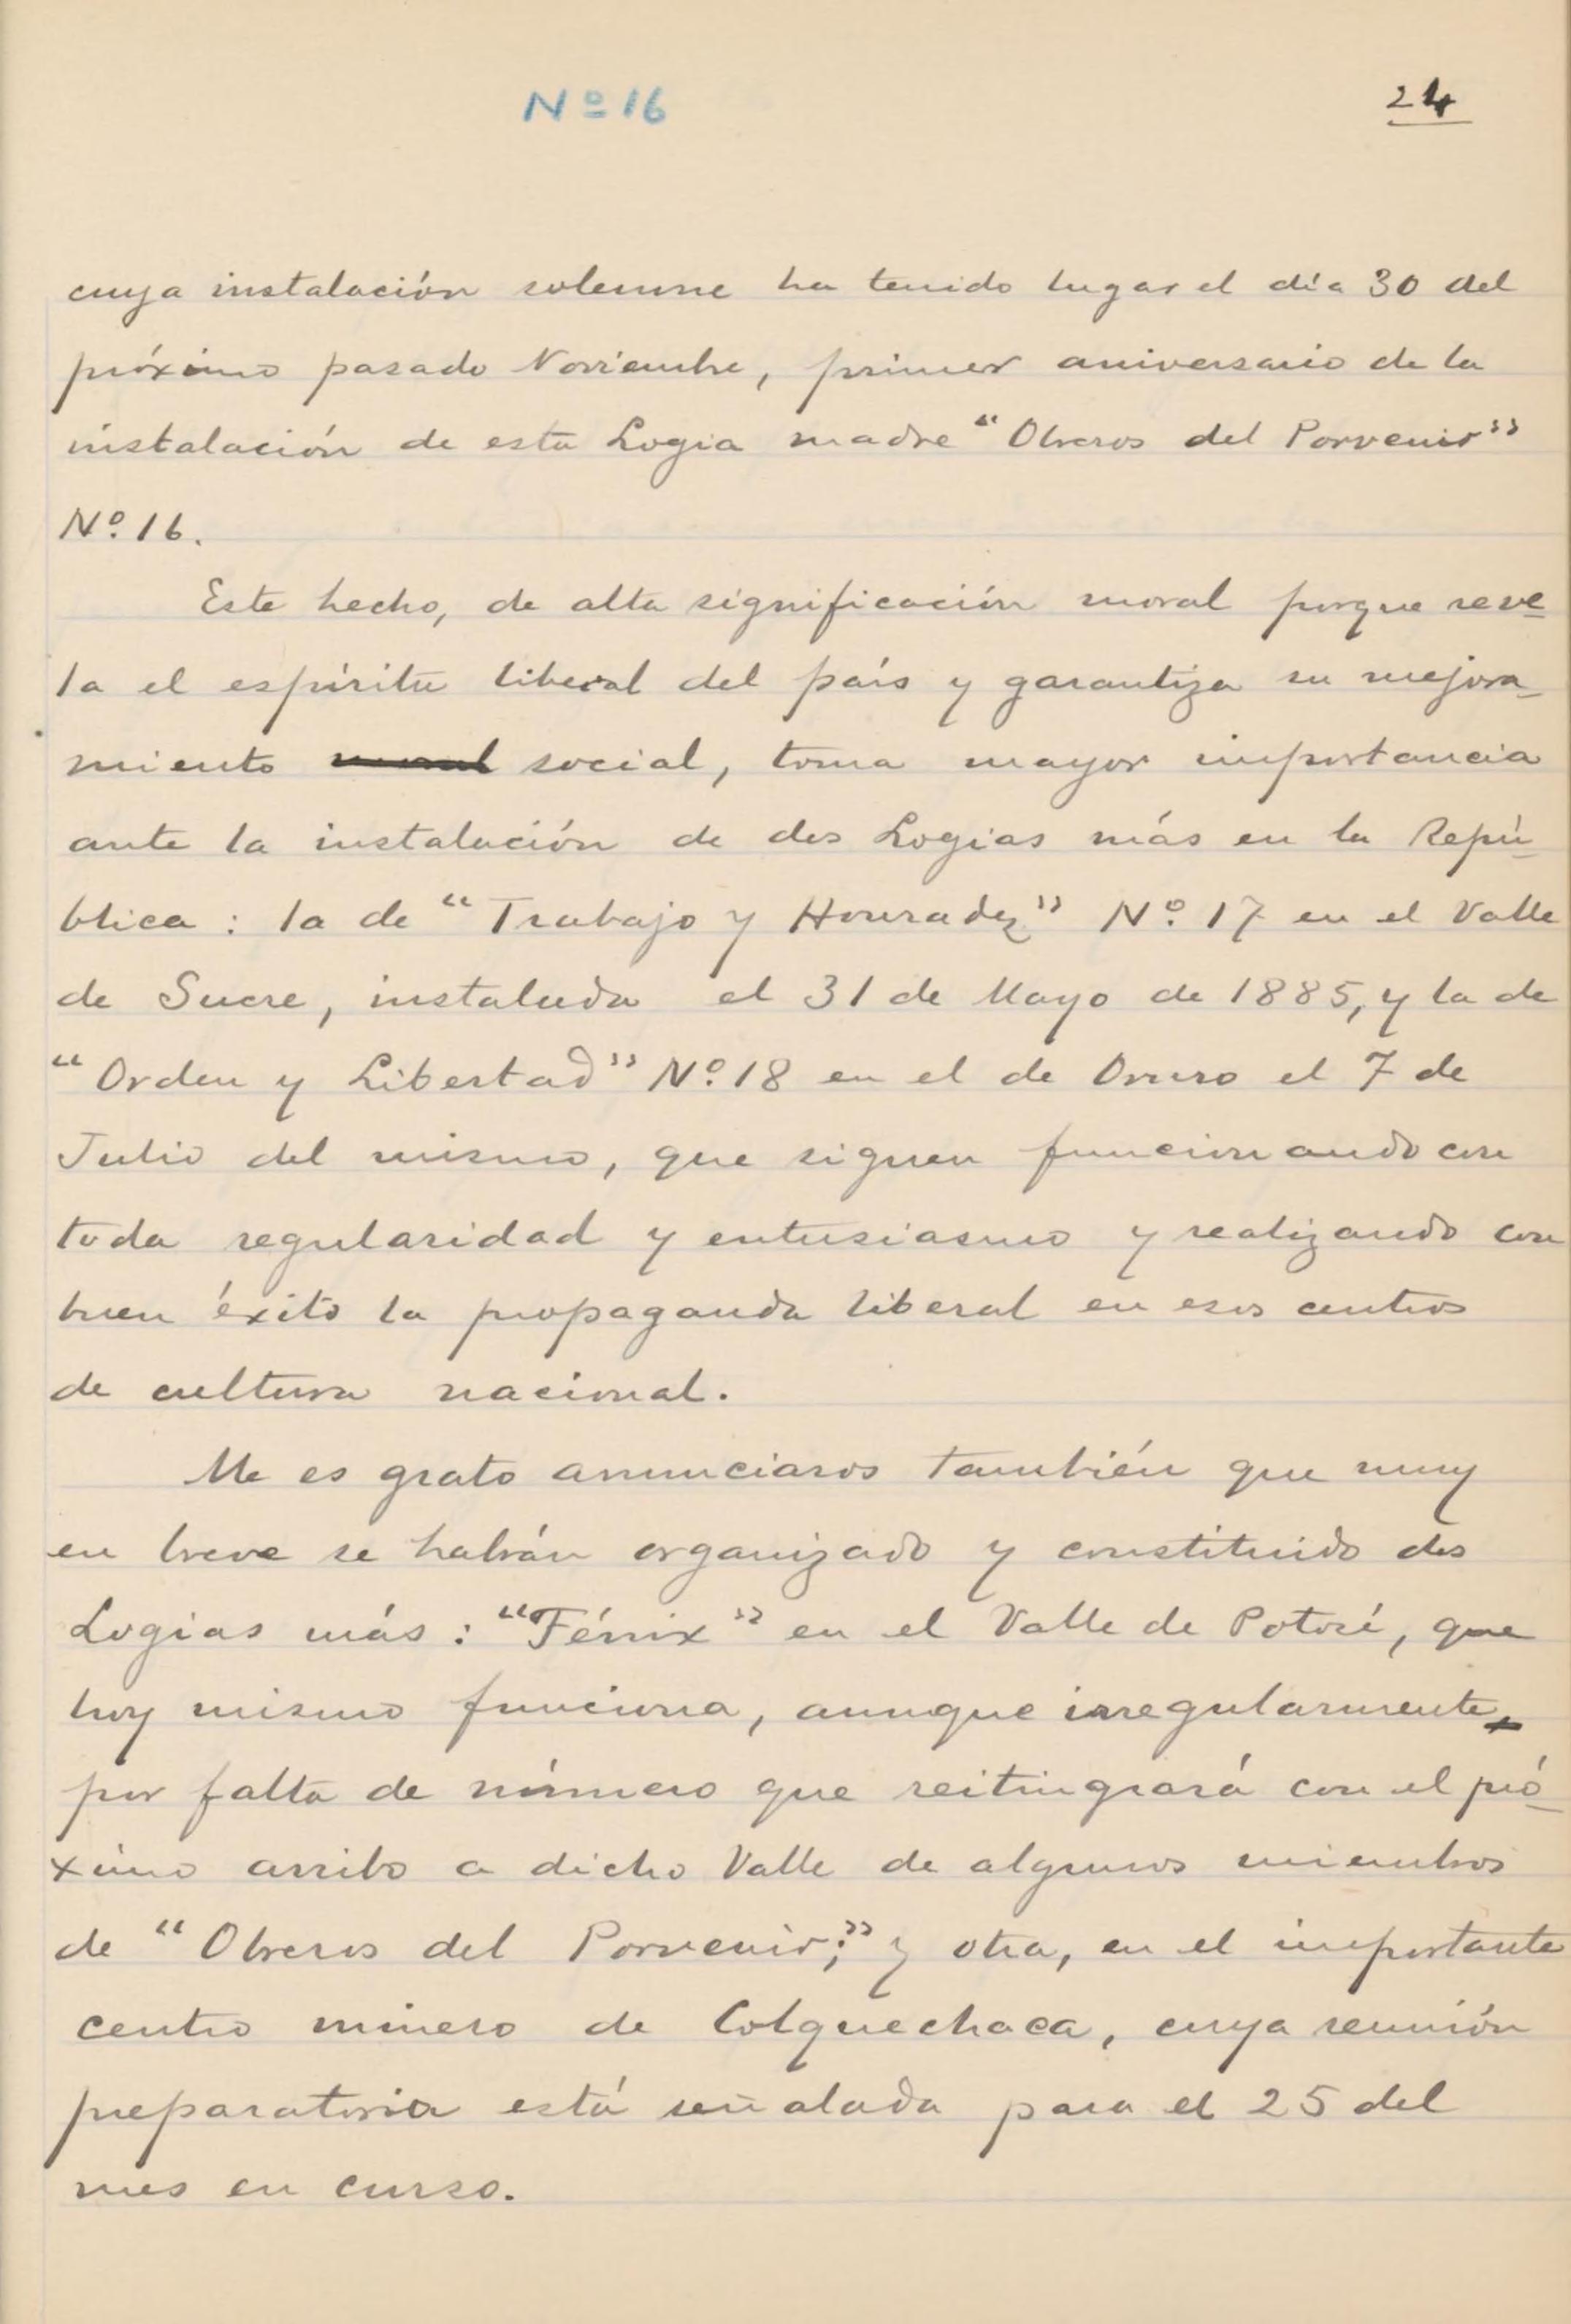 Nº 16
24
cuya instalación solemne ha tenido lugar el día 30 del
próximo pasado Noviembre, primer aniversario de la
instalación de esta Logia madre "Obreros del Porvenir"
Nº. 16.
Este hecho, de alta significación moral porque reve-
la el espíritu liberal del país y garantiza su mejora-
miento moral social, toma mayor importancia
ante la instalación de dos Logias más en la Repú-
blica: la de "Trabajo y Honradez" Nº. 17 en el Valle
de Sucre, instalada el 31 de Mayo de 1885, y la de
"Orden y Libertad" Nº. 18 en el de Oruro el 7 de
Julio del mismo, que siguen funcionando con
toda regularidad y entusiasmo y realizando con
buen éxito la propaganda liberal en esos centros
de cultura nacional.
Me es grato anunciaros también que muy
en breve se habrán organizado y constituido dos
Logias más: "Fénix" en el Valle de Potosí, que
hoy mismo funciona, aunque irregularmente,
por falta de número que reitingrará con el pró-
ximo arribo a dicho Valle de algunos miembros
de "Obreros del Porvenir;" y otra, en el importante
centro minero de Colquechaca, cuya reunión
preparatoria está señalada para el 25 del
mes en curso.